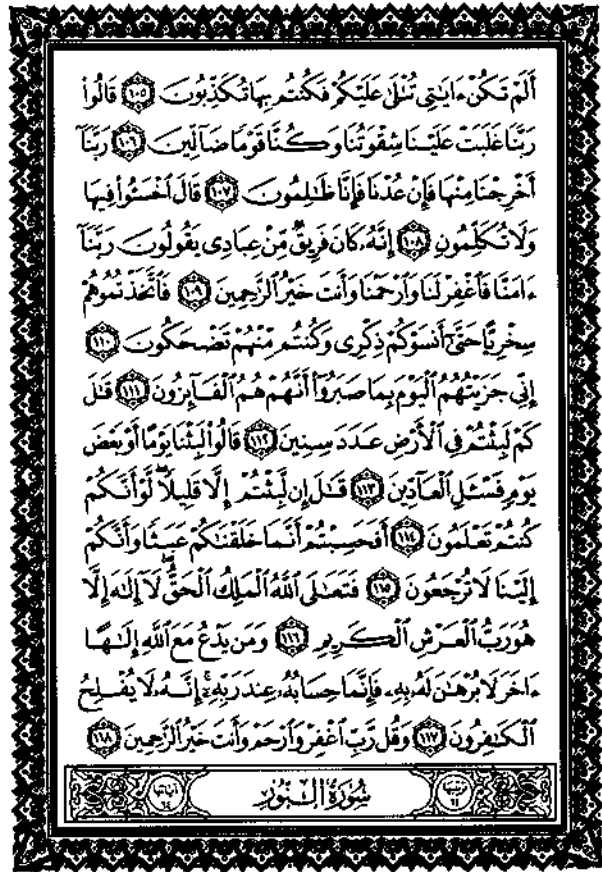 أَلَمْ تَكُنْ ءَايَٰتِى تُتْلَىٰ عَلَيْكُمْ فَكُنتُم بِهَا تُكَذِّبُونَ ١٠٥ قَالُوا۟
رَبَّنَا غَلَبَتْ عَلَيْنَا شِقْوَتُنَا وَكُنَّا قَوْمًا ضَآلِّينَ ١٠٦ رَبَّنَآ
أَخْرِجْنَا مِنْهَا فَإِنْ عُدْنَا فَإِنَّا ظَٰلِمُونَ ١٠٧ قَالَ ٱخْسَـُٔوا۟ فِيهَا
وَلَا تُكَلِّمُونِ ١٠٨ إِنَّهُۥ كَانَ فَرِيقٌ مِّنْ عِبَادِى يَقُولُونَ رَبَّنَآ
ءَامَنَّا فَٱغْفِرْ لَنَا وَٱرْحَمْنَا وَأَنتَ خَيْرُ ٱلرَّٰحِمِينَ ١٠٩ فَٱتَّخَذْتُمُوهُمْ
سِخْرِيًّا حَتَّىٰٓ أَنسَوْكُمْ ذِكْرِى وَكُنتُم مِّنْهُمْ تَضْحَكُونَ ١١٠
إِنِّى جَزَيْتُهُمُ ٱلْيَوْمَ بِمَا صَبَرُوٓا۟ أَنَّهُمْ هُمُ ٱلْفَآئِزُونَ ١١١ قَٰلَ
كَمْ لَبِثْتُمْ فِى ٱلْأَرْضِ عَدَدَ سِنِينَ ١١٢ قَالُوا۟ لَبِثْنَا يَوْمًا أَوْ بَعْضَ
يَوْمٍ فَسْـَٔلِ ٱلْعَآدِّينَ ١١٣ قَٰلَ إِن لَّبِثْتُمْ إِلَّا قَلِيلًا ۖ لَّوْ أَنَّكُمْ
كُنتُمْ تَعْلَمُونَ ١١٤ أَفَحَسِبْتُمْ أَنَّمَا خَلَقْنَٰكُمْ عَبَثًا وَأَنَّكُمْ
إِلَيْنَا لَا تُرْجَعُونَ ١١٥ فَتَعَٰلَى ٱللَّهُ ٱلْمَلِكُ ٱلْحَقُّ ۖ لَآ إِلَٰهَ إِلَّا
هُوَ رَبُّ ٱلْعَرْشِ ٱلْكَرِيمِ ١١٦ وَمَن يَدْعُ مَعَ ٱللَّهِ إِلَٰهًا
ءَاخَرَ لَا بُرْهَٰنَ لَهُۥ بِهِۦ فَإِنَّمَا حِسَابُهُۥ عِندَ رَبِّهِۦٓ ۚ إِنَّهُۥ لَا يُفْلِحُ
ٱلْكَٰفِرُونَ ١١٧ وَقُل رَّبِّ ٱغْفِرْ وَٱرْحَمْ وَأَنتَ خَيْرُ ٱلرَّٰحِمِينَ ١١٨
سُورَةُ ٱلنُّورِ